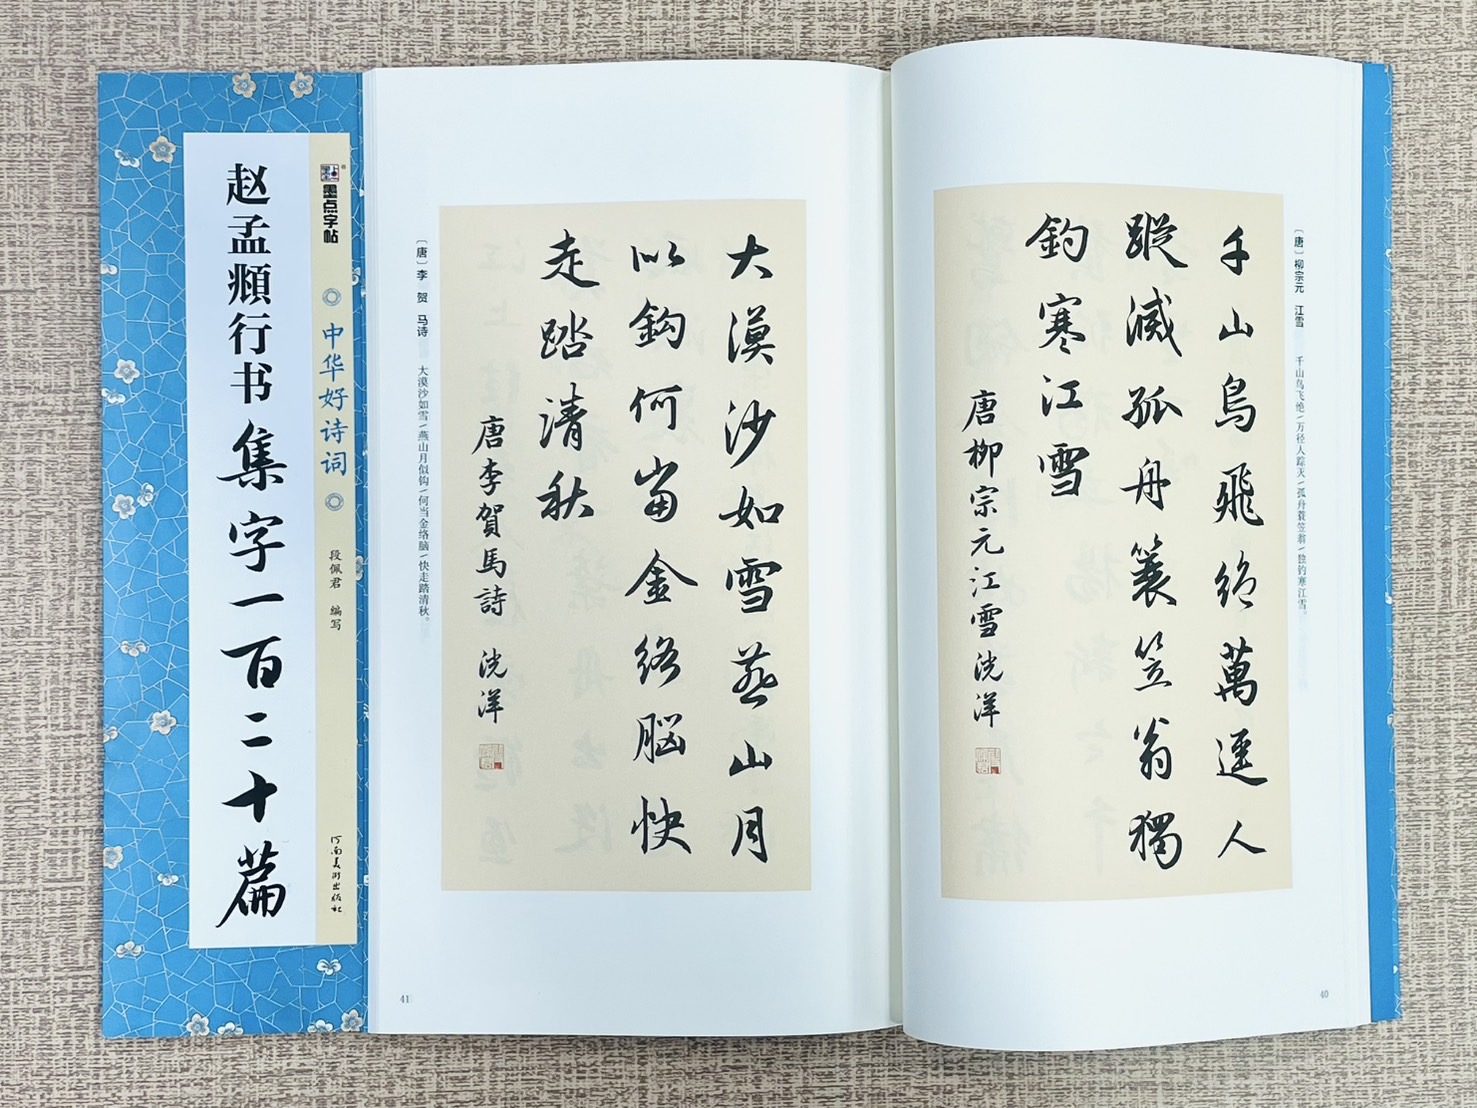 赵孟頫行书集字一百二十篇
墨点字帖
中华好诗词
段佩君 编写
河南美术出版社
〔唐〕柳宗元 江雪 千山鸟飞绝/万径人踪灭/孤舟蓑笠翁/独钓寒江雪。
千山鳥飛絕萬逕人
蹤滅孤舟簑笠翁獨
釣寒江雪
唐柳宗元江雪 洸洋
40
大漠沙如雪燕山月
以鈎何當金络脑快
走踏清秋
唐李賀馬詩 洸洋
〔唐〕李贺 马诗 大漠沙如雪/燕山月似钩/何当金络脑/快走踏清秋。
41